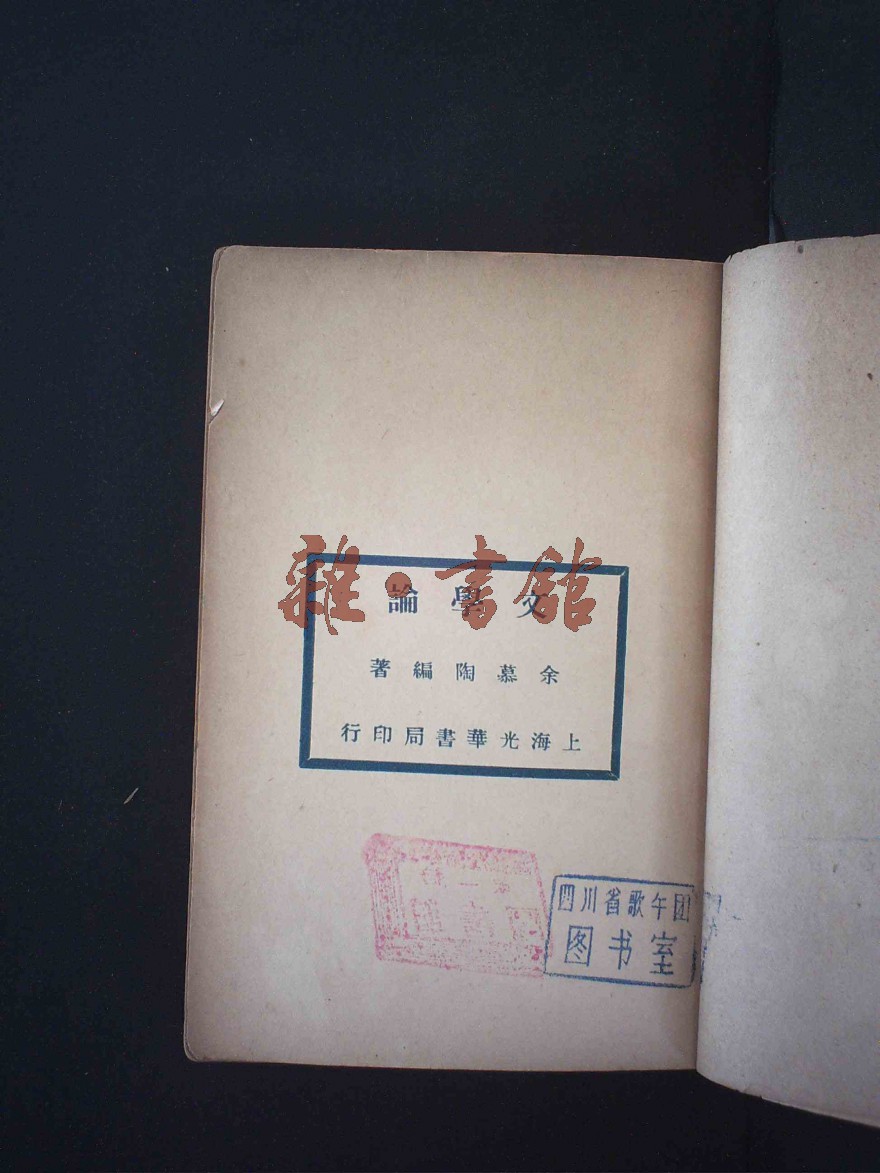 雜·書館
文學論
余慕陶編著
上海光華書局印行
四川省歌午团
图书室